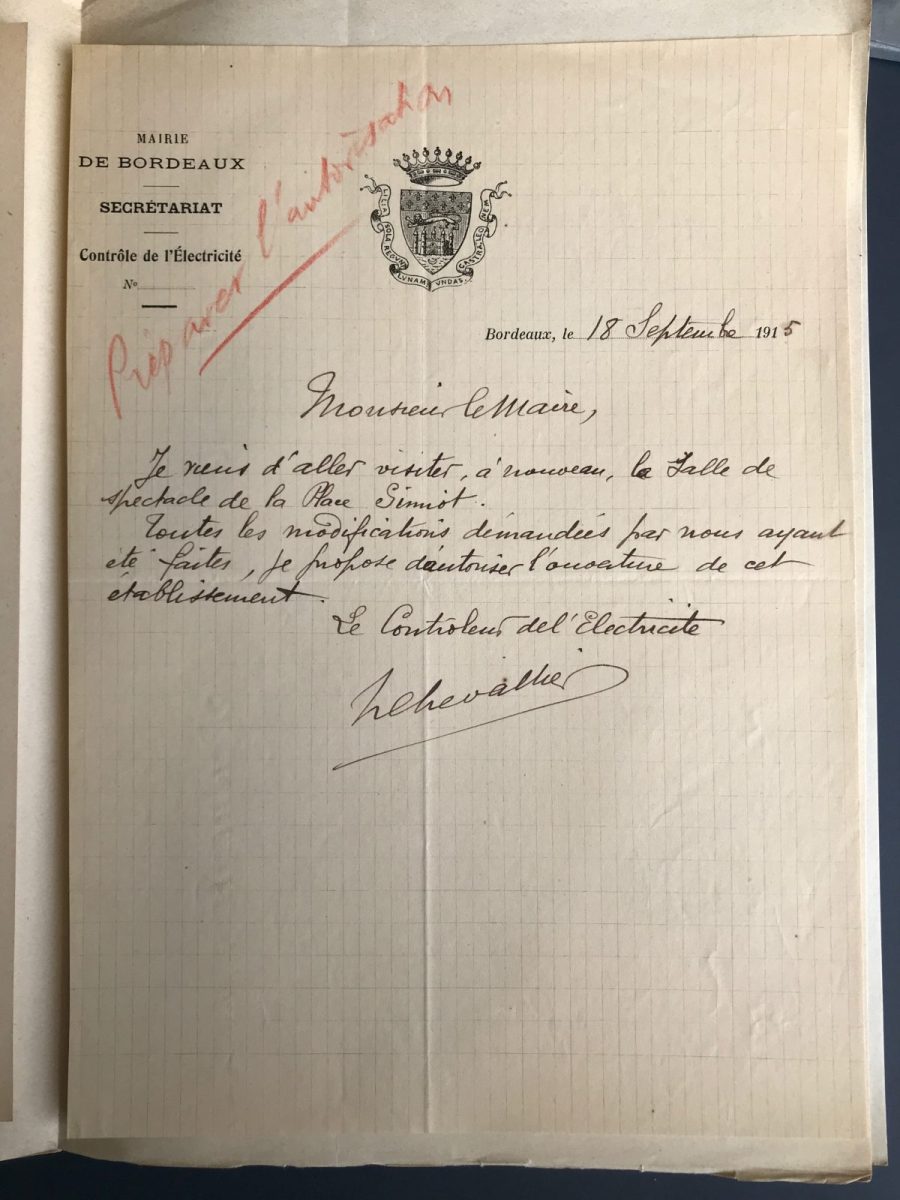 MAIRIE
DE BORDEAUX
SECRÉTARIAT
Contrôle de l'Électricité
No
Préparer l'autorisation
LILIA SOLA REGUNT LVNAM VNDAS CASTRA LEONEM
Bordeaux, le 18 Septembre 1915
Monsieur le Maire,
Je viens d'aller visiter, à nouveau, la Salle de
spectacle de la Place
Toutes les modifications demandées par nous ayant
été faites, je propose d'autoriser l'ouverture de cet
établissement.
Le Controleur de l'Electricité
Chevallier